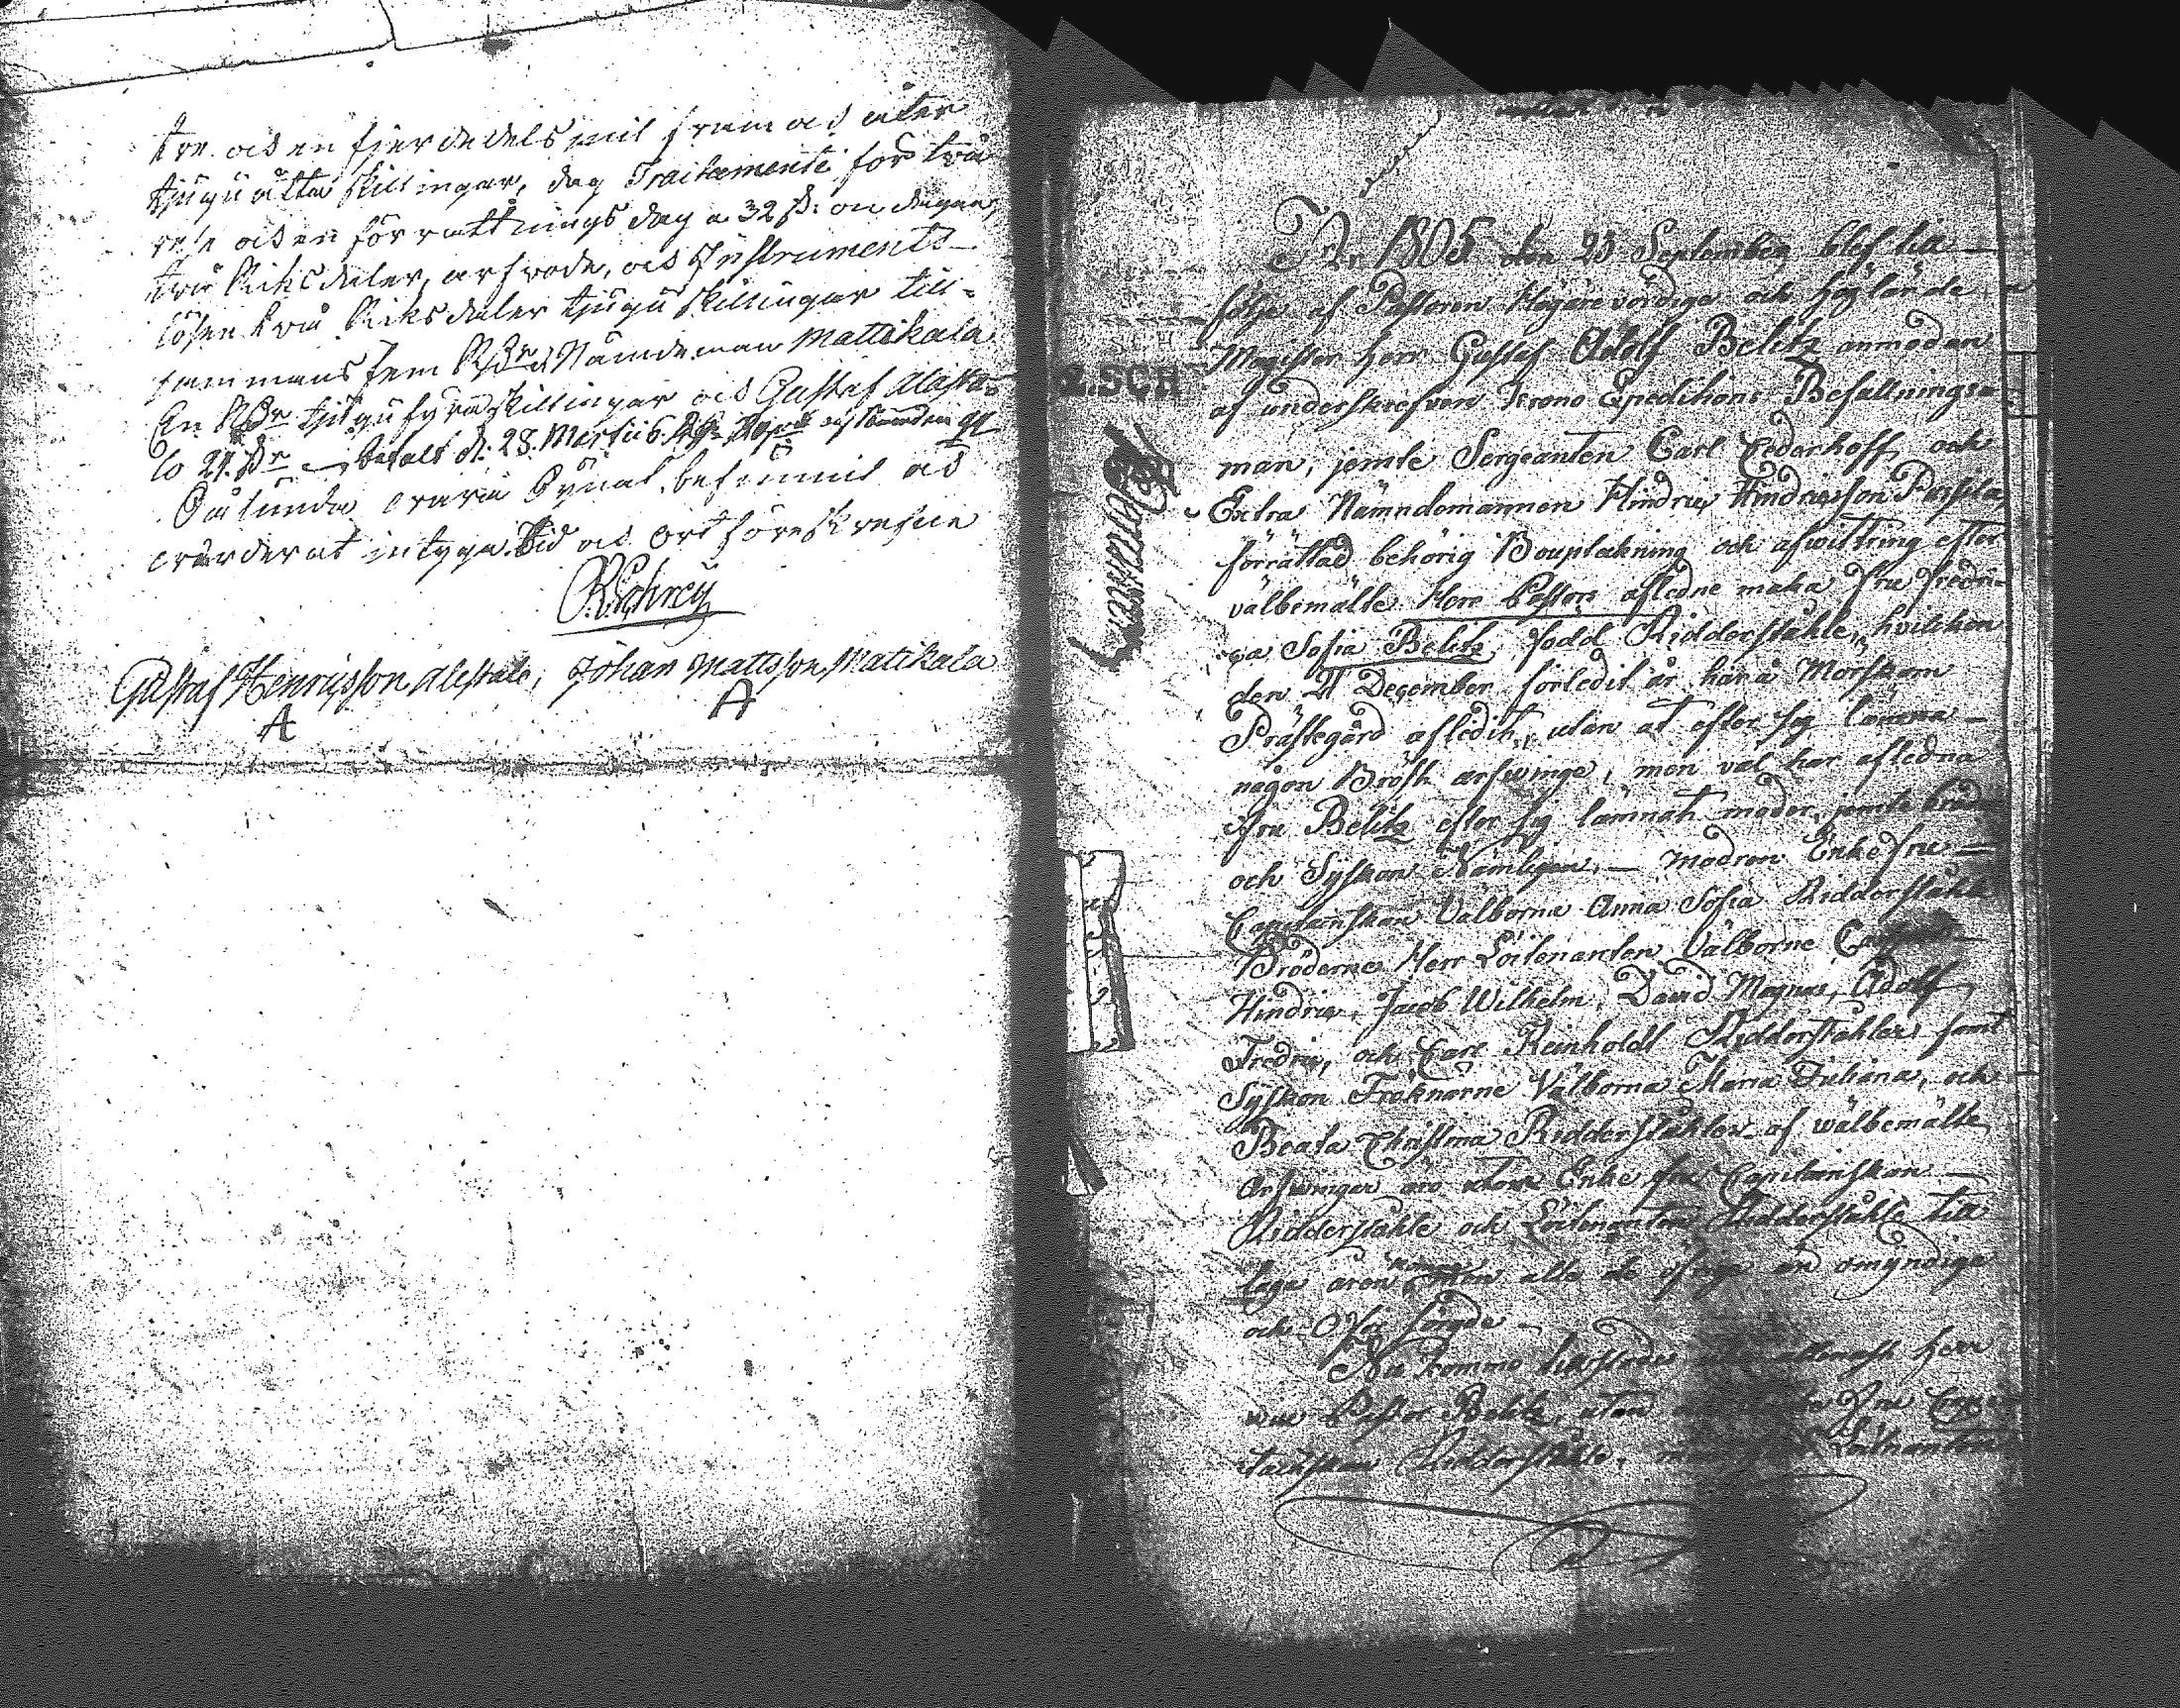 tre och en fjerdedels mil fram och åter
tjugu åtta Skillingar, dag Traitemente för två
rese och en förrättnings dag a 32 s: om dagen,
två Riksdaler, arfvode, och Instruments
lösen två Riksdaler tjugu Skillingar till-
sammans fem RDr Nämdeman Mattikala
En RDr tjugu fyra skillingar och Gustaf Alesta-
lo 24 betalt d. 28. Martii
Sålunda vara Synat, befunnit och
värderat intyga. Tid och Ort föreskrefne
Gustaf Henricsson Alestalo, Johan Mattsson Matikala
A A
År 1805 den 23 September blef till
följe af Pastoren Högärevördige och höglärde
Magister herr Gustaf Adolf Belitz anmodan
L.SCH
af underskrefven Krono Expeditions Befallnings-
man, jemte Sergeanten Carl Cederhoff, och
Extra Nämndemannen Hindric Hindricsson
förrättad behörig Boupteckning och afwittring efter
välbemälte Herr Pastors afledne maka Fru Fredri-
ca Sofia Belitz, född Ridderståhle, hvilcken
den 21 December förledit år här å Mörskom
Prästegård afledit, utan at efter sig lämna
någon Bröst arfwinge, men väl har afledna
Fru Belitz efter sig lämnat moder, jemte bröder
och Syskon Nämligen, — modren Enkefru
Capitainskan Välborna Anna Sofia Ridderståhle
Bröderne Herr Löitenanten Välborne
Hindric, Jacob Wilhelm, David Magnus, Adolf
Fredric, och Carl Reinholdt Ridderståhler samt
Syskon Fröknarne Välborna Maria Juliana, och
Beata Christina Ridderståhler. af wälbemälte
Arfwingar äro utom Enke fru Capitainskan
Ridderståhle och Löitenanten Ridderståhle till
laga åren komne alle de öfrige än omyndige
och
Nu kommo tillstädes herr
Pastor Belitz, utan Fru Capi-
tainskan Ridderståhle, Löitnanten